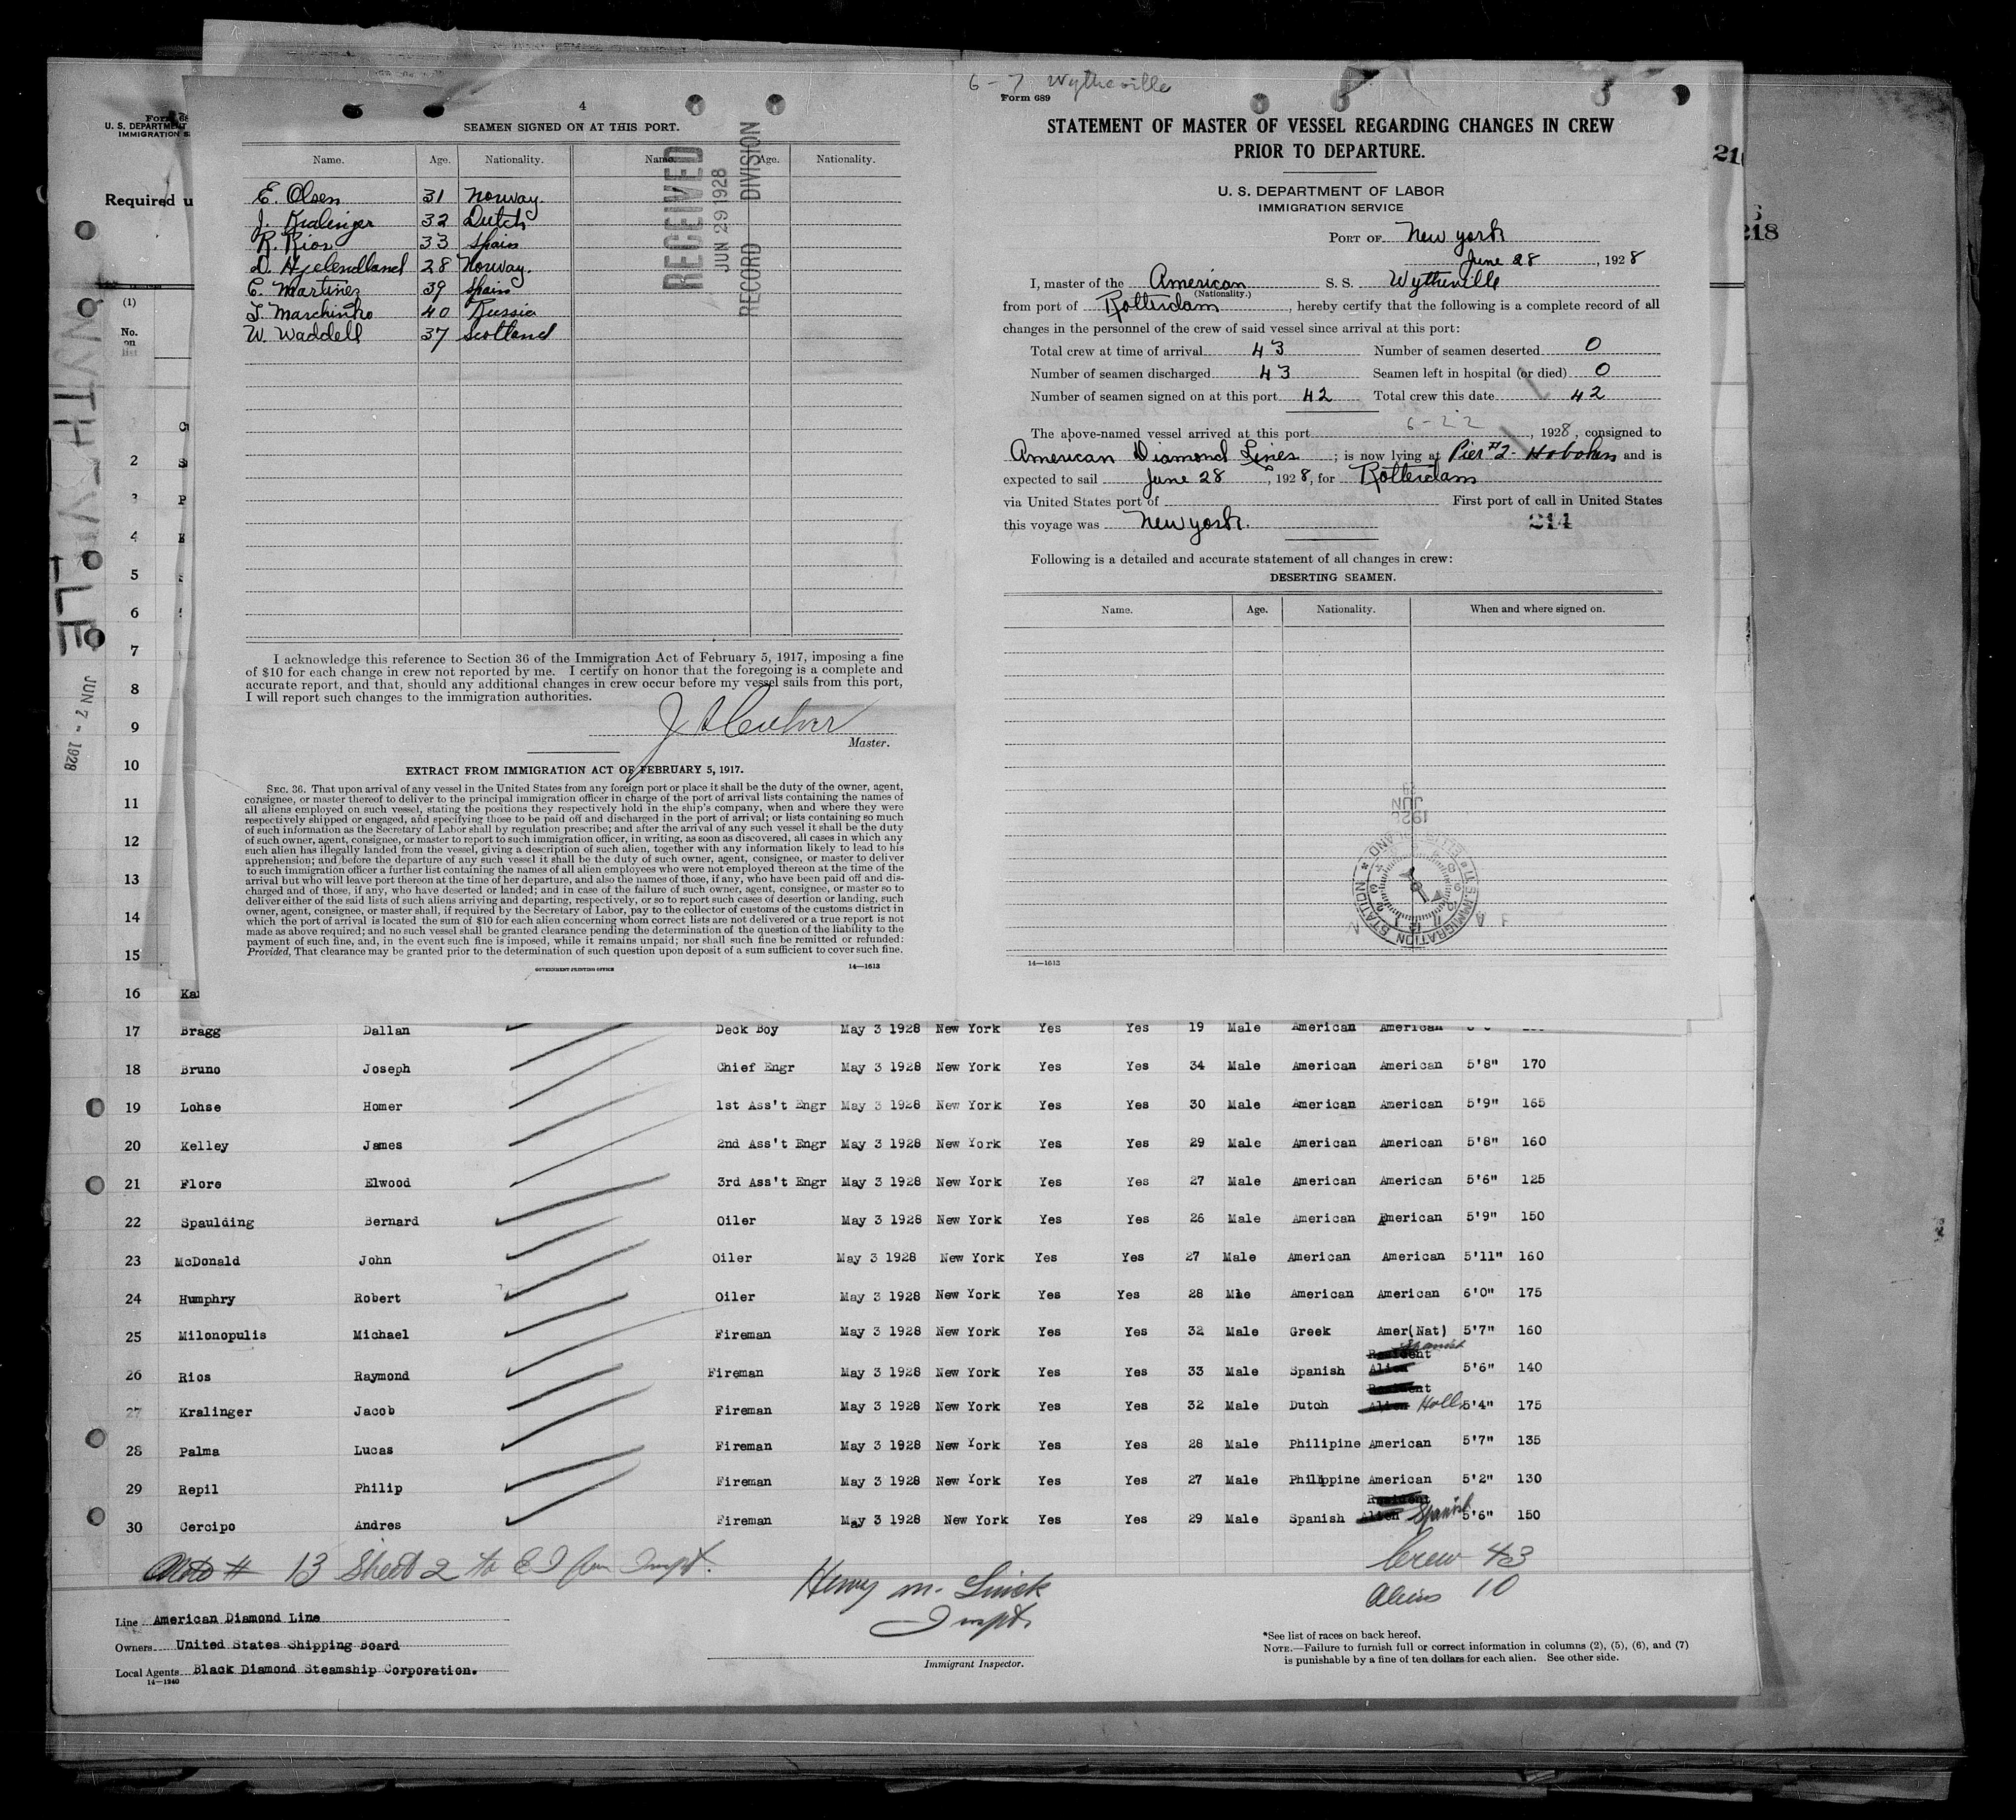 4
SEAMEN SIGNED ON AT THIS PORT.
Name. Age. Nationality. Name. Age. Nationality.
E. Olsen 31 Norway.
J. Kralinger 32 Dutch
R. Rios 33 Spain
D. Hjelendland 28 Norway.
C. Martines 39 Spain
T. Marchinko 40 Russia
W. Waddell 37 Scotland
RECEIVED
JUN 29 1928
RECORD DIVISION
I acknowledge this reference to Section 36 of the Immigration Act of February 5, 1917, imposing a fine
of $10 for each change in crew not reported by me. I certify on honor that the foregoing is a complete and
accurate report, and that, should any additional changes in crew occur before my vessel sails from this port,
I will report such changes to the immigration authorities.
Master.
EXTRACT FROM IMMIGRATION ACT OF FEBRUARY 5, 1917.
SEC. 36. That upon arrival of any vessel in the United States from any foreign port or place it shall be the duty of the owner, agent,
consignee, or master thereof to deliver to the principal immigration officer in charge of the port of arrival lists containing the names of
all aliens employed on such vessel, stating the positions they respectively hold in the ship's company, when and where they were
respectively shipped or engaged, and specifying those to be paid off and discharged in the port of arrival; or lists containing so much
of such information as the Secretary of Labor shall by regulation prescribe; and after the arrival of any such vessel it shall be the duty
of such owner, agent, consignee, or master to report to such immigration officer, in writing, as soon as discovered, all cases in which any
such alien has illegally landed from the vessel, giving a description of such alien, together with any information likely to lead to his
apprehension; and before the departure of any such vessel it shall be the duty of such owner, agent, consignee, or master to deliver
to such immigration officer a further list containing the names of all alien employees who were not employed thereon at the time of the
arrival but who will leave port thereon at the time of her departure, and also the names of those, if any, who have been paid off and dis-
charged and of those, if any, who have deserted or landed; and in case of the failure of such owner, agent, consignee, or master so to
deliver either of the said lists of such aliens arriving and departing, respectively, or so to report such cases of desertion or landing, such
owner, agent, consignee, or master shall, if required by the Secretary of Labor, pay to the collector of customs of the customs district in
which the port of arrival is located the sum of $10 for each alien concerning whom correct lists are not delivered or a true report is not
made as above required; and no such vessel shall be granted clearance pending the determination of the question of the liability to the
payment of such fine, and, in the event such fine is imposed, while it remains unpaid; nor shall such fine be remitted or refunded:
Provided, That clearance may be granted prior to the determination of such question upon deposit of a sum sufficient to cover such fine.
GOVERNMENT PRINTING OFFICE 14—1613
6-7 Wytheville
Form 689
STATEMENT OF MASTER OF VESSEL REGARDING CHANGES IN CREW
PRIOR TO DEPARTURE.
U. S. DEPARTMENT OF LABOR
IMMIGRATION SERVICE
PORT OF New York
June 28, 1928
I, master of the American S. S. Wytheville
(Nationality.)
from port of Rotterdam, hereby certify that the following is a complete record of all
changes in the personnel of the crew of said vessel since arrival at this port:
Total crew at time of arrival 43 Number of seamen deserted 0
Number of seamen discharged 43 Seamen left in hospital (or died) 0
Number of seamen signed on at this port 42 Total crew this date 42
The above-named vessel arrived at this port 6-22, 1928, consigned to
American Diamond Lines; is now lying at Pier #2- Hoboken and is
expected to sail June 28, 1928, for Rotterdam
via United States port of First port of call in United States
this voyage was New York.
214
Following is a detailed and accurate statement of all changes in crew:
DESERTING SEAMEN.
Name. Age. Nationality. When and where signed on.
JUN
1928
U.S. IMMIGRATION STATION
14—1613
U. S. DEPARTMENT
IMMIGRATION S
Required u
(1)
No.
on
list
JUN 7 - 1928
218
2
3
4
5
6
7
8
9
10
11
12
13
14
15
16 Ka
17 Bragg Dallan Deck Boy May 3 1928 New York Yes Yes 19 Male American American
18 Bruno Joseph Chief Engr May 3 1928 New York Yes Yes 34 Male American American 5'8" 170
19 Lohse Homer 1st Ass't Engr May 3 1928 New York Yes Yes 30 Male American American 5'9" 165
20 Kelley James 2nd Ass't Engr May 3 1928 New York Yes Yes 29 Male American American 5'8" 160
21 Flore Elwood 3rd Ass't Engr May 3 1928 New York Yes Yes 27 Male American American 5'6" 125
22 Spaulding Bernard Oiler May 3 1928 New York Yes Yes 26 Male American American 5'9" 150
23 McDonald John Oiler May 3 1928 New York Yes Yes 27 Male American American 5'11" 160
24 Humphry Robert Oiler May 3 1928 New York Yes Yes 28 Mle American American 6'0" 175
25 Milonopulis Michael Fireman May 3 1928 New York Yes Yes 32 Male Greek Amer(Nat) 5'7" 160
Resident Spanish
26 Rios Raymond Fireman May 3 1928 New York Yes Yes 33 Male Spanish Alien 5'6" 140
Resident
27 Kralinger Jacob Fireman May 3 1928 New York Yes Yes 32 Male Dutch Alien Holl 5'4" 175
28 Palma Lucas Fireman May 3 1928 New York Yes Yes 28 Male Philipine American 5'7" 135
29 Repil Philip Fireman May 3 1928 New York Yes Yes 27 Male Philippine American 5'2" 130
Resident
30 Cercipo Andres Fireman May 3 1928 New York Yes Yes 29 Male Spanish Alien Spanish 5'6" 150
# 13 Sheet 2 to
Crew 43
Aliens 10
Henry M.
Inspt.
Immigrant Inspector.
Line American Diamond Line
Owners United States Shipping Board
Local Agents Black Diamond Steamship Corporation.
14—1240
*See list of races on back hereof.
NOTE.—Failure to furnish full or correct information in columns (2), (5), (6), and (7)
is punishable by a fine of ten dollars for each alien. See other side.